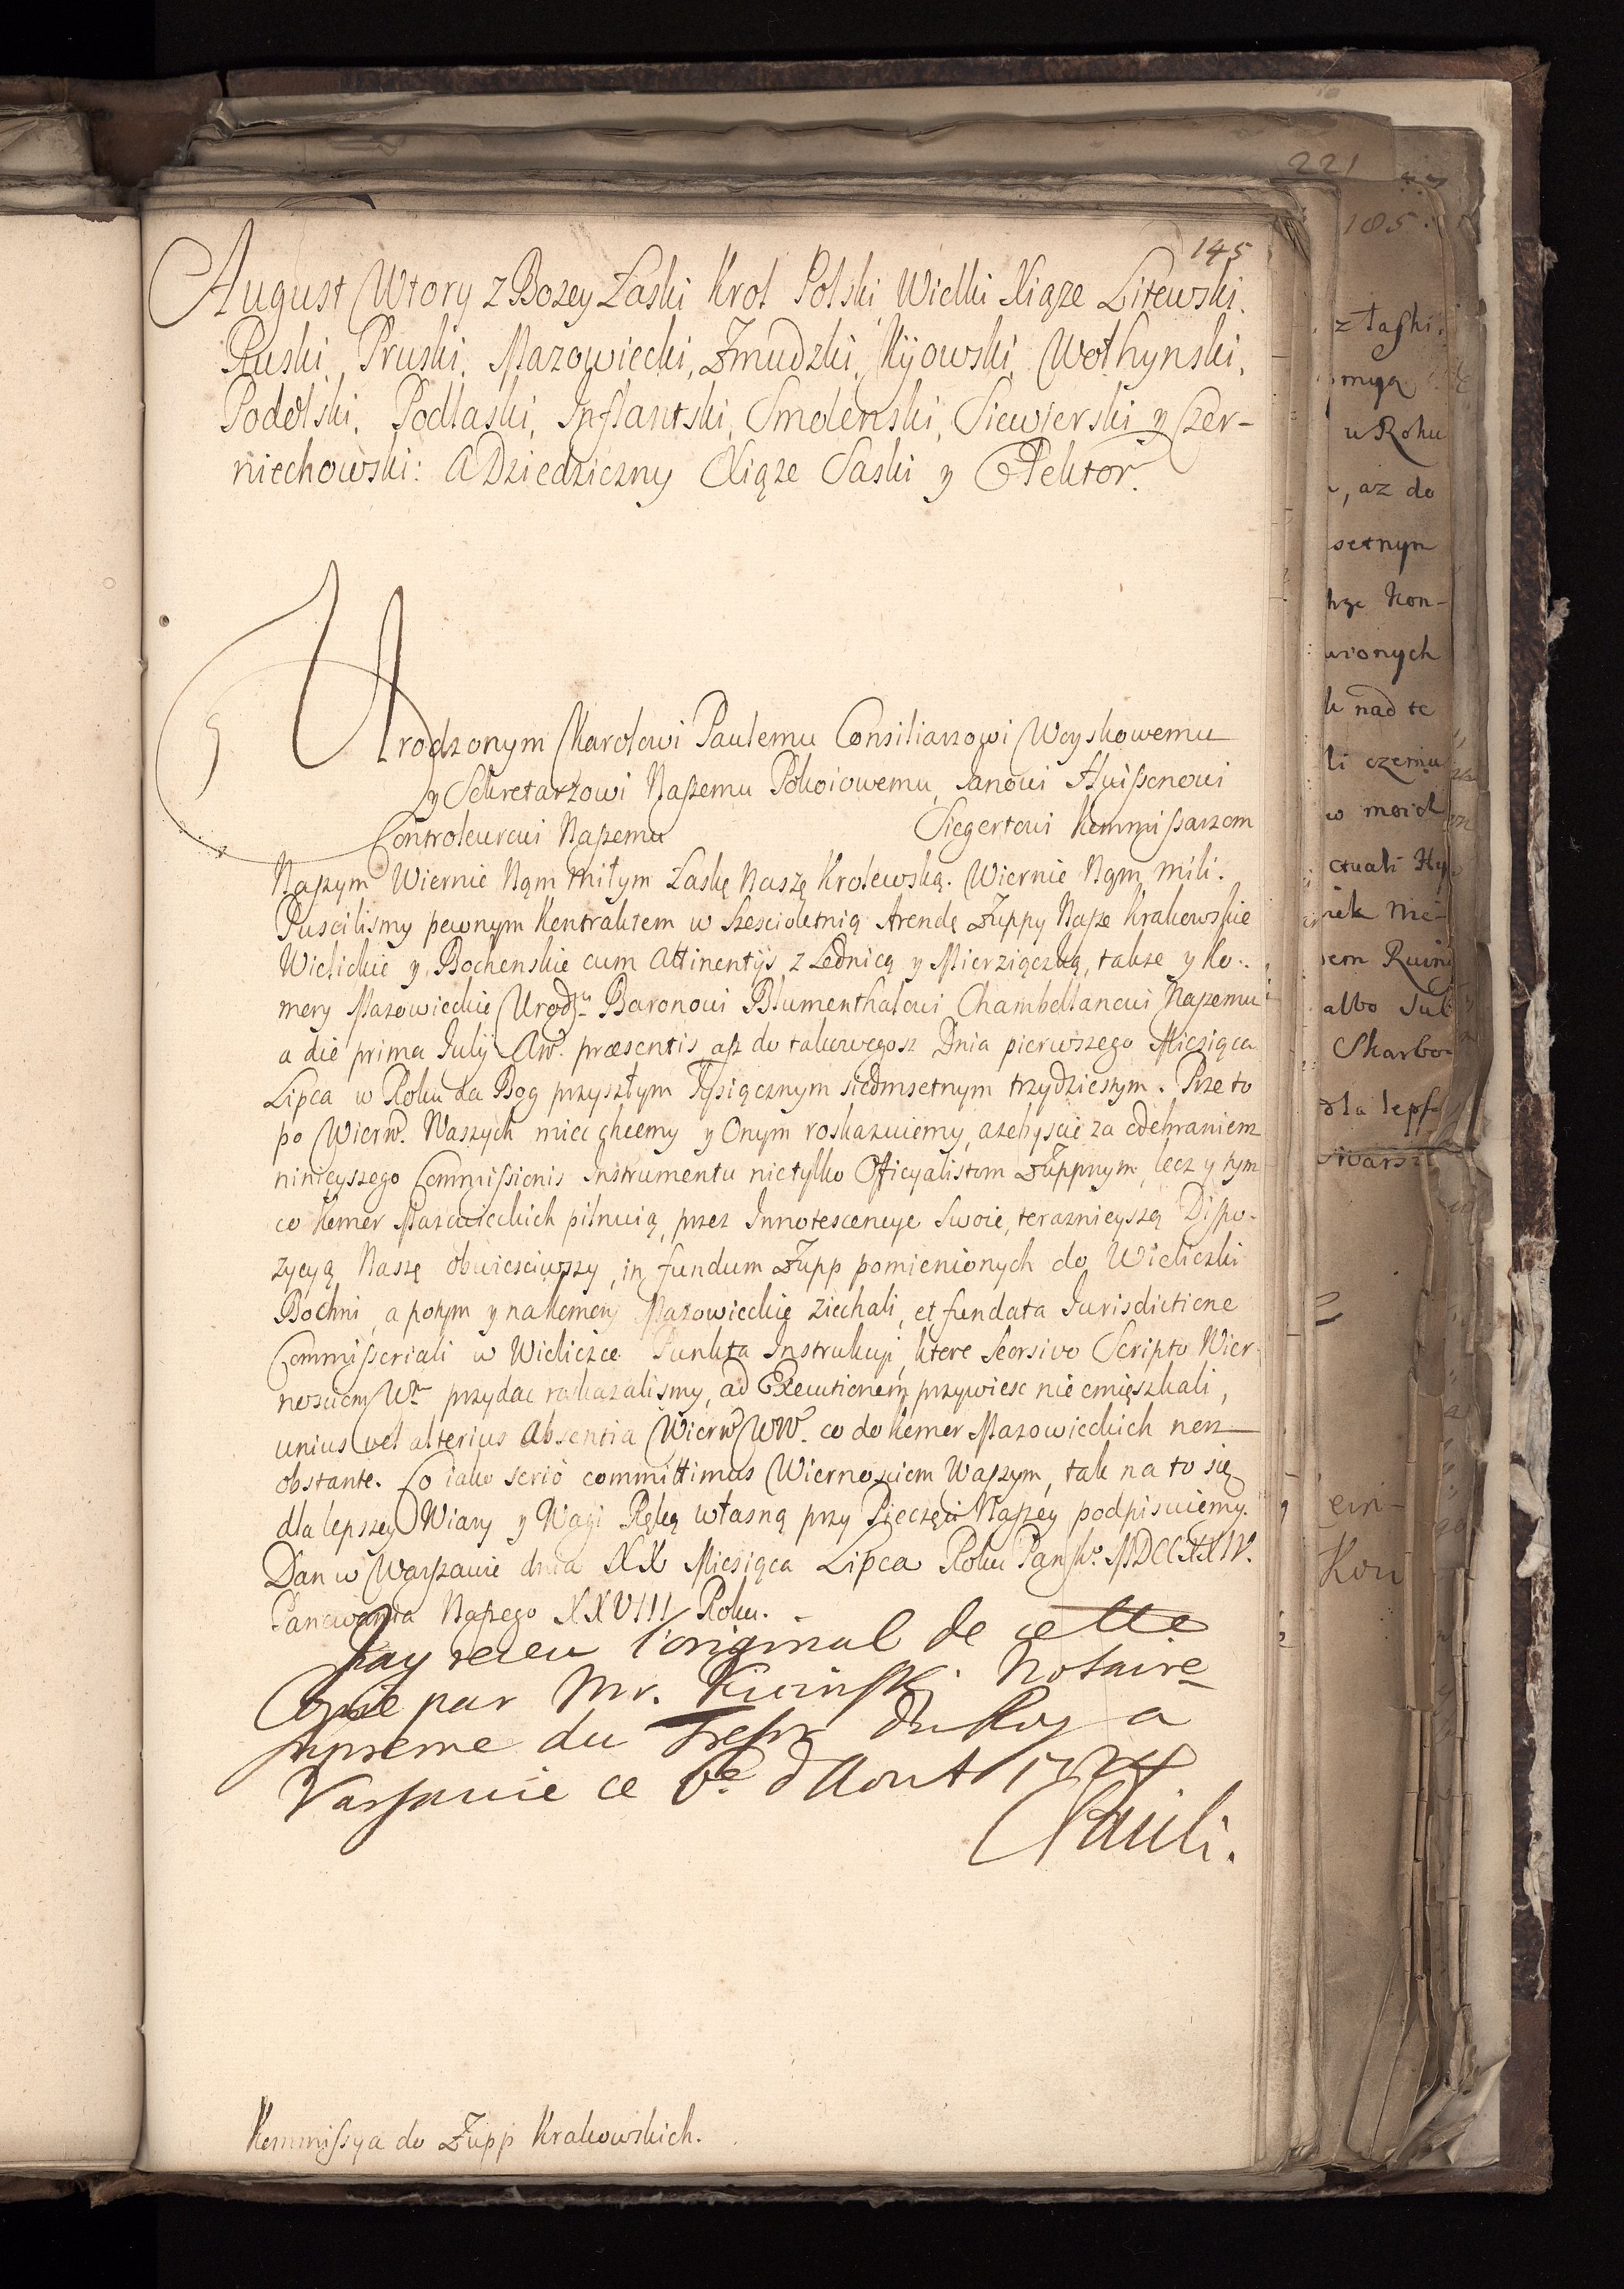 221
185.
145
August Wtory z Bozey Łaski Krol Polski, Wielki Xiąze Litewski,
Ruski, Pruski, Mazowiecki, Zmudzki, Kijowski, Wołhynski,
Podolski, Podlaski, Inflantski, Smolenski, Siewierski y Czer-
niechowski: A Dziedziczny Xiąze Saski y Elektor.
Urodzonym Karolowi Paulemu Consiliarzowi Woyskowemu
y Sekretarzowi Naszemu Pokoiowemu, Janowi Huissenowi
Controleurowi Naszemu Siegertowi Kommissarzom
Naszym Wiernie Nąm miłym Łaskę Naszę Krolewską. Wiernie Nąm mili.
Puscilismy pewnym Kontraktem w Szescioletnią Arendę Zuppy Nasze Krakowskie
Wielickie y Bochenskie cum Attinentijs z Lednicą y Mierziączką, takze y Ko-
mory Mazowieckie Urodz: Baronowi Blumenthalowi Chambellanowi Naszemu
a die prima Julij Aw. præsentis asz do takowegosz Dnia pierwszego Miesiąca
Lipca w Roku da Bog przyszłym Tysiącznym siedmsetnym trzydziestym. Prze to
po Wierw. Naszych miec chcemy y Onym roskazuiemy, azebyscie za odebraniem
ninieyszego Commissionis Instrumentu nietylko Officyalistom Zuppnym, lecz y tym
co Komor Mazowieckich pilnuią, przez Innotescencye Swoie, teraznieyszą Dispo-
zycyą Naszę obwiesciwszy, in fundum Zupp pomienionych do Wieliczki
Bochni, a potym y na Komory Mazowieckie ziechali, et fundata Jurisdictione
Commissoriali w Wieliczce Punkta Instrukcyi, ktore Seorsivo Scripto Wier-
nosciom Wm przydac roskazalismy, ad Executionem przywiesc nie omięszkali,
unius vel alterius Absentia Wierw WW. co do Komor Mazowieckich non
obstante. Co iako serio committimus Wiernosciom Waszym, tak na to się
dla lepszey Wiary y Wagi Ręką własną przy Pieczęci Naszey podpisuiemy.
Dan w Warszawie dnia XX Miesiąca Lipca Roku Pansko MDCCXXIV.
Panowania Naszego XXVIII Roku.
J'ay receu l'original de cette
Copie par Mr. Notaire
supreme du Tresor du Roy a
Varsovie ce d'Aout 1724
CPauli.
Kommissya do Zupp Krakowskich.
z łaski
u Roku
, az do
setnym
Kon-
wionych
nad te
li czemu
w moich
albo
Skarbo
dla lepsz
Kon